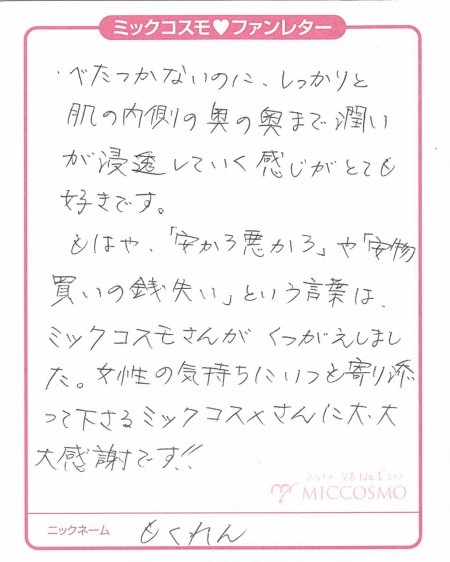 ミックコスモ♥ファンレター
・べたつかないのに、しっかりと
肌の内側の奥の奥まで潤い
が浸透していく感じがとても
好きです。
もはや、「安かろ悪かろ」や「安物
買いの銭失い」という言葉は、
ミックコスモさんが くつがえしまし
た。女性の気持ちにいつも寄り添
って下さるミックコスメさんに大、大
大感謝です!!
MICCOSMO
ニックネーム
もくれん